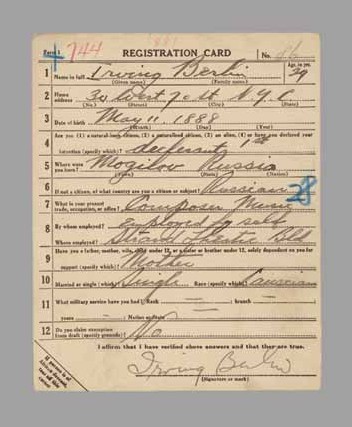 Form 1 744 REGISTRATION CARD No. 86
1 Name in full Irving Berlin Age, in yrs. 29
(Given name) (Family name)
2 Home address 30 West 70 St N.Y.C.
(No.) (Street) (City) (State)
3 Date of birth May 11, 1888
(Month) (Day) (Year)
4 Are you (1) a natural-born citizen, (2) a naturalized citizen, (3) an alien, (4) or have you declared your
intention (specify which)? declarant 1st
5 Where were you born? Mogilov Russia
(Town) (State) (Nation)
6 If not a citizen, of what country are you a citizen or subject? Russian
28
7 What is your present trade, occupation, or office? Composer Music
8 By whom employed? employed by self
Where employed? Strand Theatre Bld
9 Have you a father, mother, wife, child under 12, or a sister or brother under 12, solely dependent on you for
support (specify which)? Mother
10 Married or single (which)? Single Race (specify which)? Caucasian
11 What military service have you had? Rank ; branch
years ; Nation or State
12 Do you claim exemption from draft (specify grounds)? No
I affirm that I have verified above answers and that they are true.
Irving Berlin
(Signature or mark)